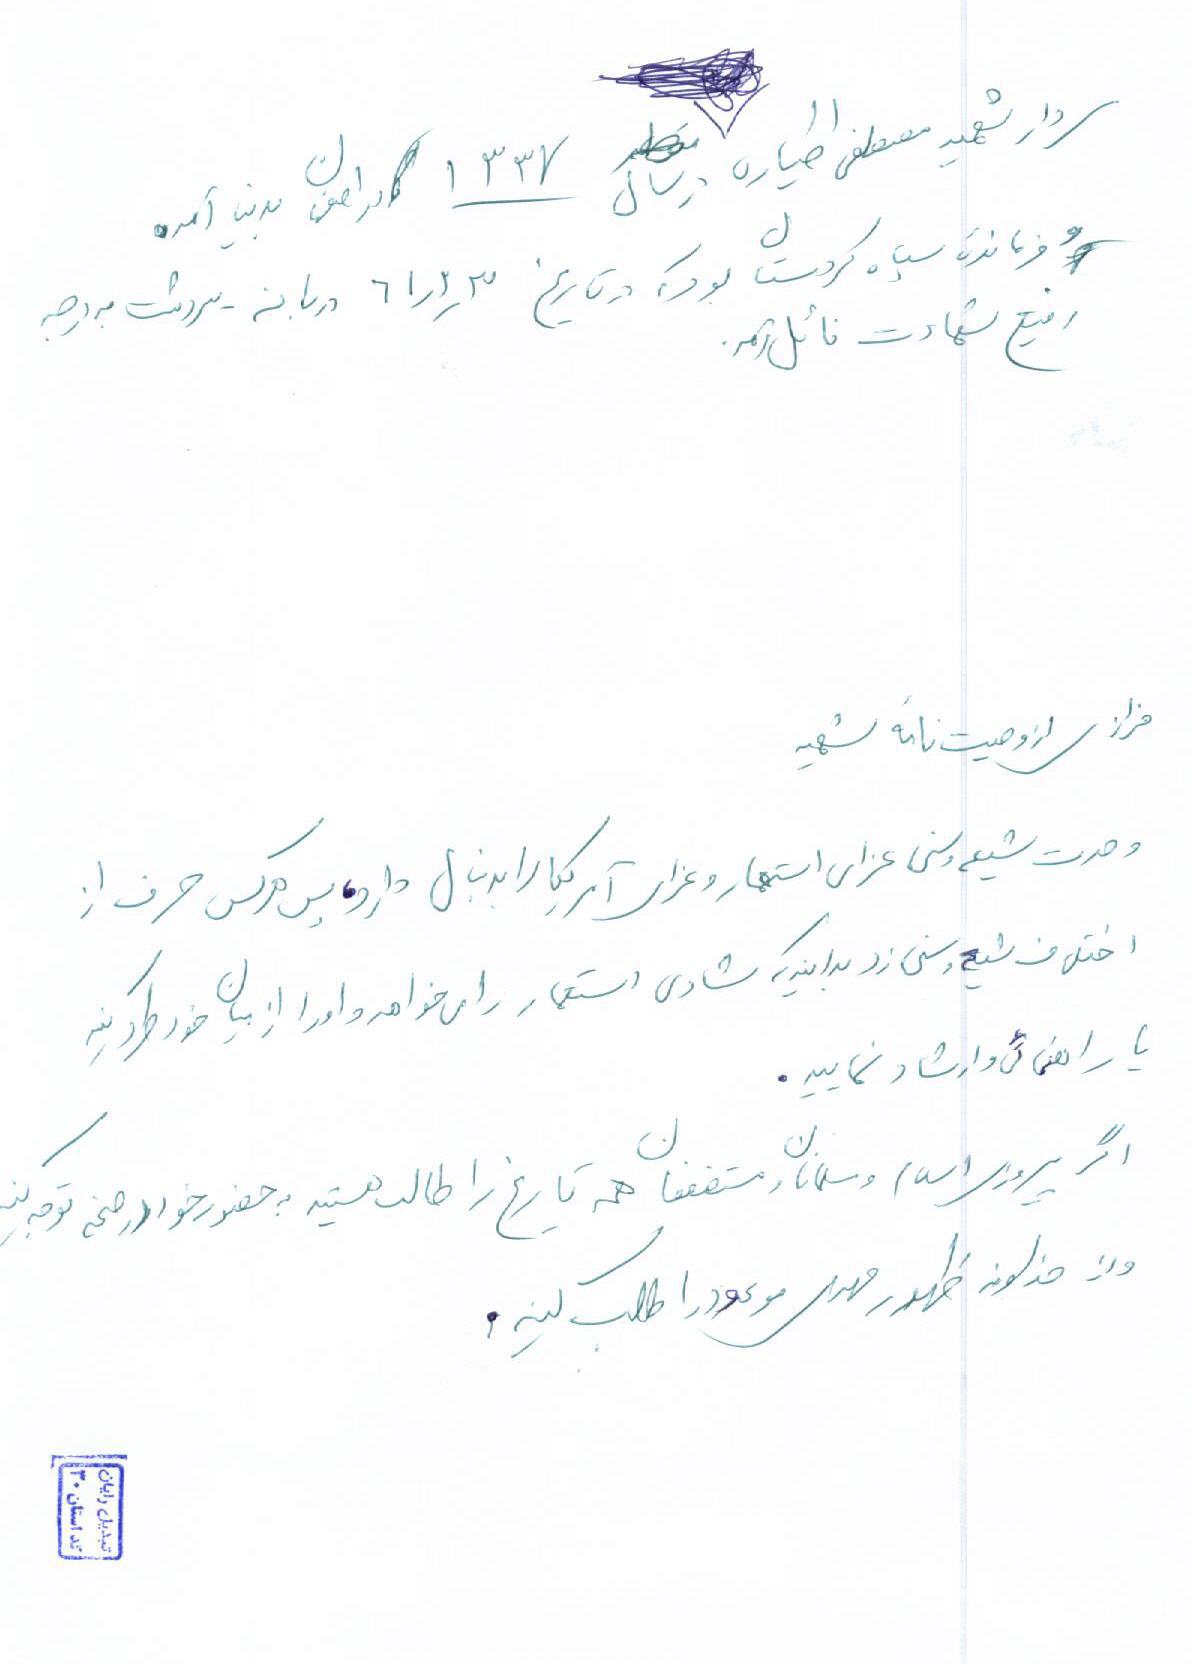 سردار شهید مصطفی طیاره در سال ۱۳۳۷ در اصفهان بدنیا آمد.
و فرمانده سپاه کردستان بود که در تاریخ ۶۱/۲/۳۰ در بانه - سردشت به درجه
رفیع شهادت نائل آمد.
فرازی از وصیت نامه شهید
وحدت شیعه و سنی عزای استعمار و عزای آمریکا را بدنبال دارد، پس هرکس حرف از
اختلاف شیعه و سنی زد بدانید که شادی استعمار را می خواهد و او را از میان خود طرد کنید
یا راهنمائی و ارشاد نمایید.
اگر پیروزی اسلام و مسلمانان و مستضعفان همه تاریخ را طالب هستید به حضور خود در صحنه توجه کنید
و از خداوند ظهور مهدی موعود را طلب کنید.
تبدیل رایان
کد استان ۳۰